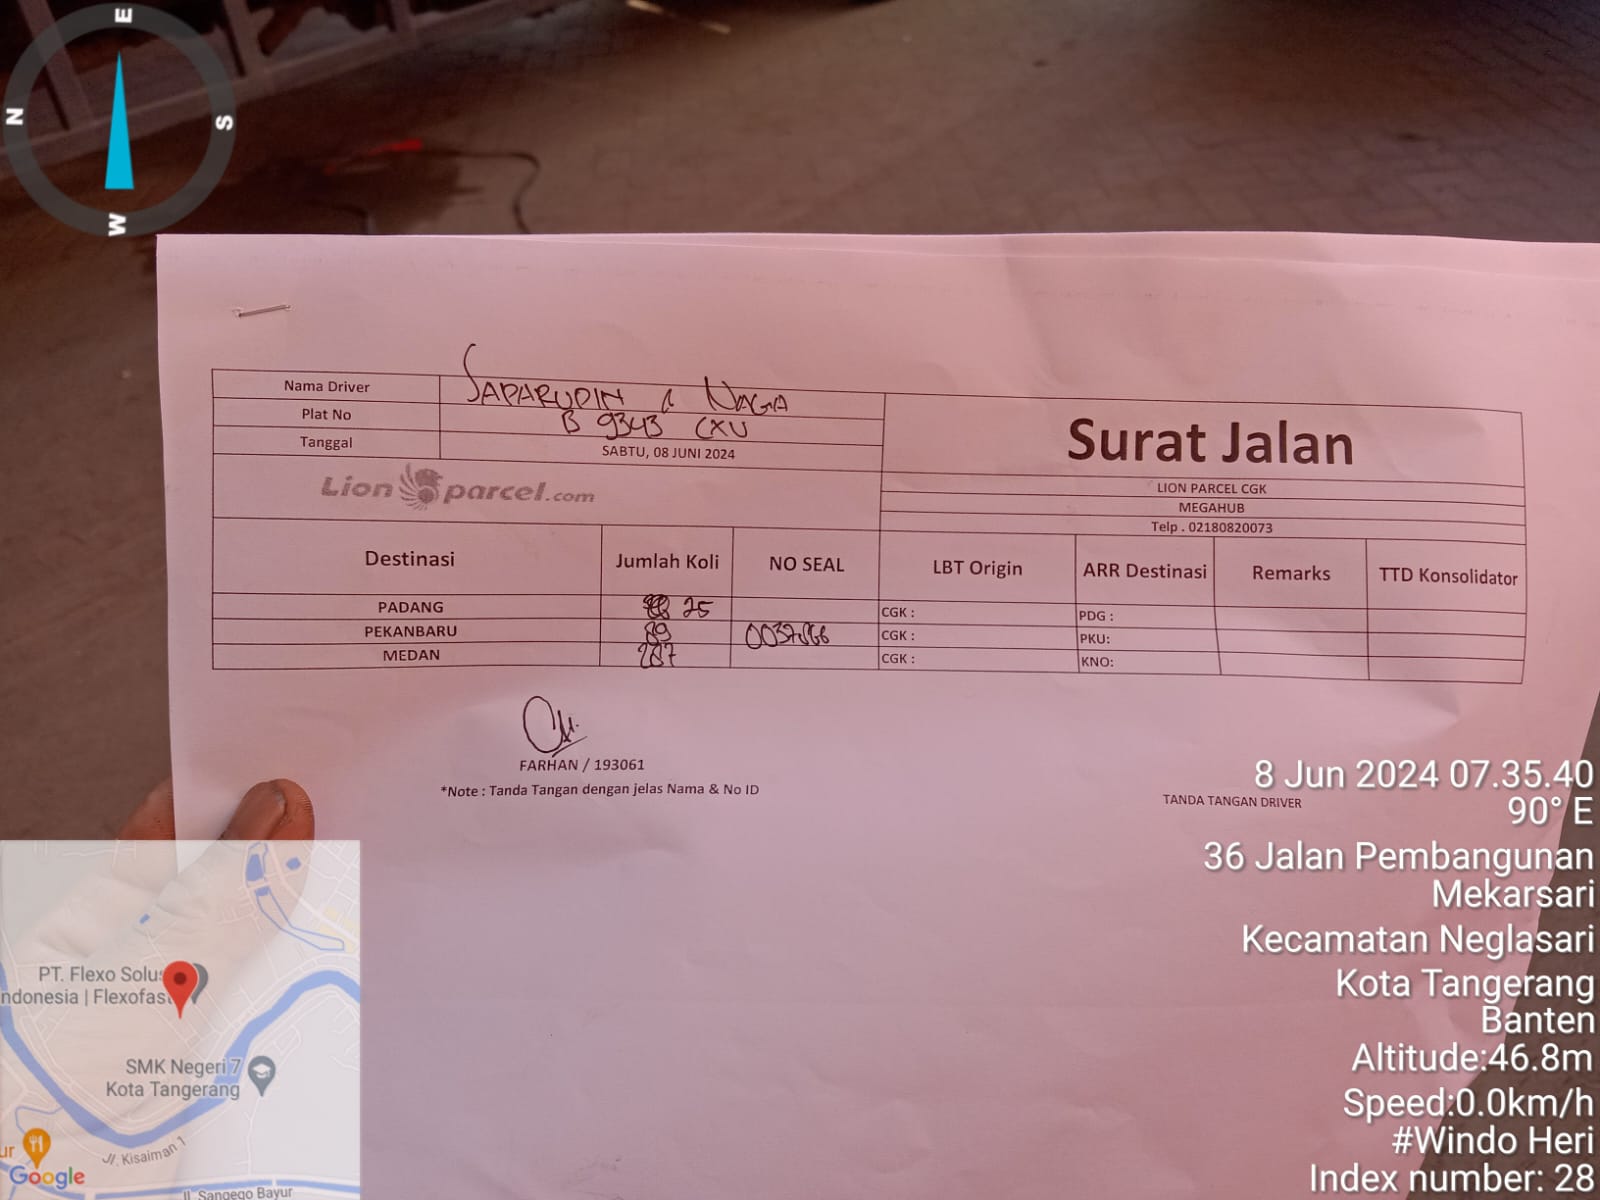 E
N
S
W
Nama Driver SAPARUDIN & NAGA
Plat No B 9343 CXU
Tanggal SABTU, 08 JUNI 2024
Surat Jalan
Lion parcel.com
LION PARCEL CGK
MEGAHUB
Telp . 02180820073
Destinasi Jumlah Koli NO SEAL LBT Origin ARR Destinasi Remarks TTD Konsolidator
PADANG 25 CGK : PDG :
PEKANBARU 89 CGK : PKU:
MEDAN 287 CGK : KNO:
FARHAN / 193061
*Note : Tanda Tangan dengan jelas Nama & No ID
TANDA TANGAN DRIVER
8 Jun 2024 07.35.40
90° E
36 Jalan Pembangunan
Mekarsari
Kecamatan Neglasari
Kota Tangerang
Banten
Altitude:46.8m
Speed:0.0km/h
#Windo Heri
Index number: 28
PT. Flexo Solus
ndonesia | Flexofast
SMK Negeri 7
Kota Tangerang
Jl. Kisaiman 1
ur
Google
Jl. Sangego Bayur